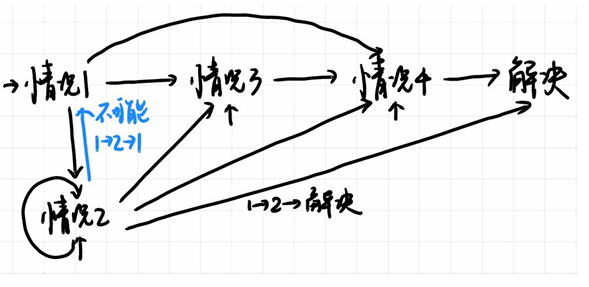 情况1
情况3
情况4
解决
不可能
1→2→1
情况2
1→2→解决